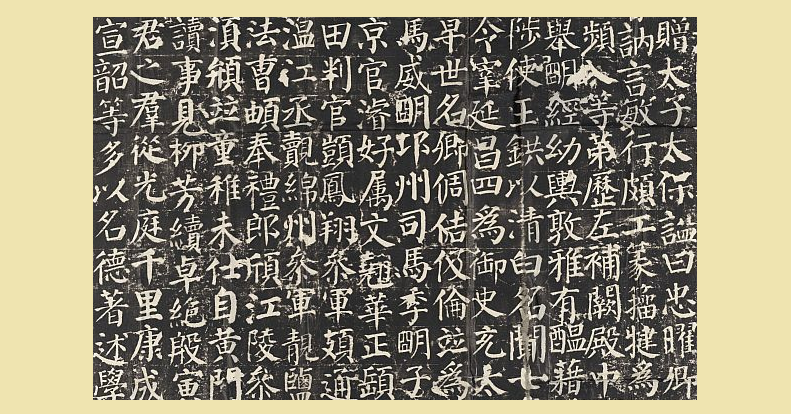 贈太子太保謚曰忠曜卿
訥言敏行頗工篆籀犍為
頻入等第歷左補闕殿中
舉眀經幼輿敦雅有醞藉
陟使王鉷以清白名聞七
今宰延昌四為御史充太
早世名卿倜佶伋倫並為
馬威眀邛州司馬季眀子
京官濬好屬文翹華正頲
田判官顗鳳翔參軍頗通
温江丞覿綿州參軍靚鹽
法曹頔奉禮郎頎江陵參
湏並童稚未仕自黃門
讀事見柳芳續卓絕殷寅
君之羣從光庭千里康成
宣韶等多以名德著述學